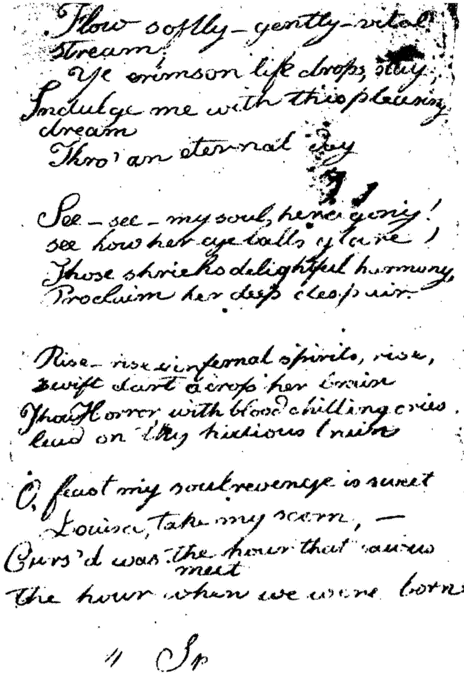 Flow softly – gently – vital
stream
Ye crimson life drops, stay,
Indulge me with this pleasing
dream
Thro' an eternal day
See – see – my soul, her agony!
see how her eye balls glare!
Those shrieks delightful harmony,
Proclaim her deep despair.
Rise – rise infernal spirits, rise,
swift dart across her brain
Thou Horror with blood chilling cries
lead on thy hidious train
O, feast my soul revenge is sweet
Louisa, take my scorn, –
Curs'd was the hour that saw us
meet
The hour when we were born